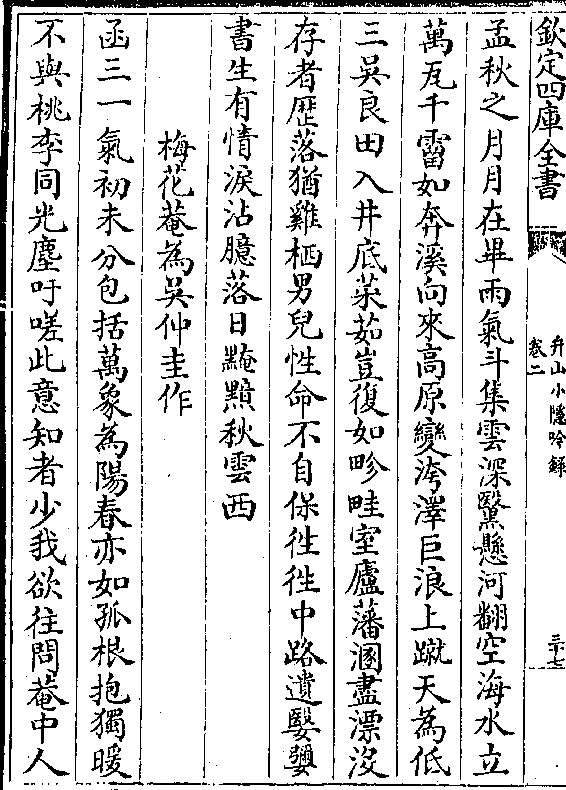 欽定四庫全書
弁山小隱吟録
卷二
三十七
孟秋之月月在畢雨氣斗集雲深黳懸河翻空海水立
萬瓦千霤如奔溪向來高原變洿澤巨浪上蹴天為低
三吳良田入井底菜茹豈復如畛畦室廬藩溷盡漂沒
存者歴落猶雞栖男兒性命不自保徃徃中路遺嬰㜷
書生有情淚沾臆落日黤黮秋雲西
梅花菴為吳仲圭作
函三一氣初未分包括萬象為陽春亦如孤根抱獨暖
不與桃李同光塵吁嗟此意知者少我欲往問菴中人